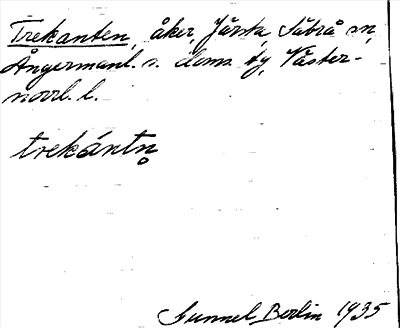 Trekanten, åker, Järsta, Säbrå sn,
Ångermanl. s. doms. fg, Väster-
norrl. l.
trekántn̥
Gunnel Berlin 1935